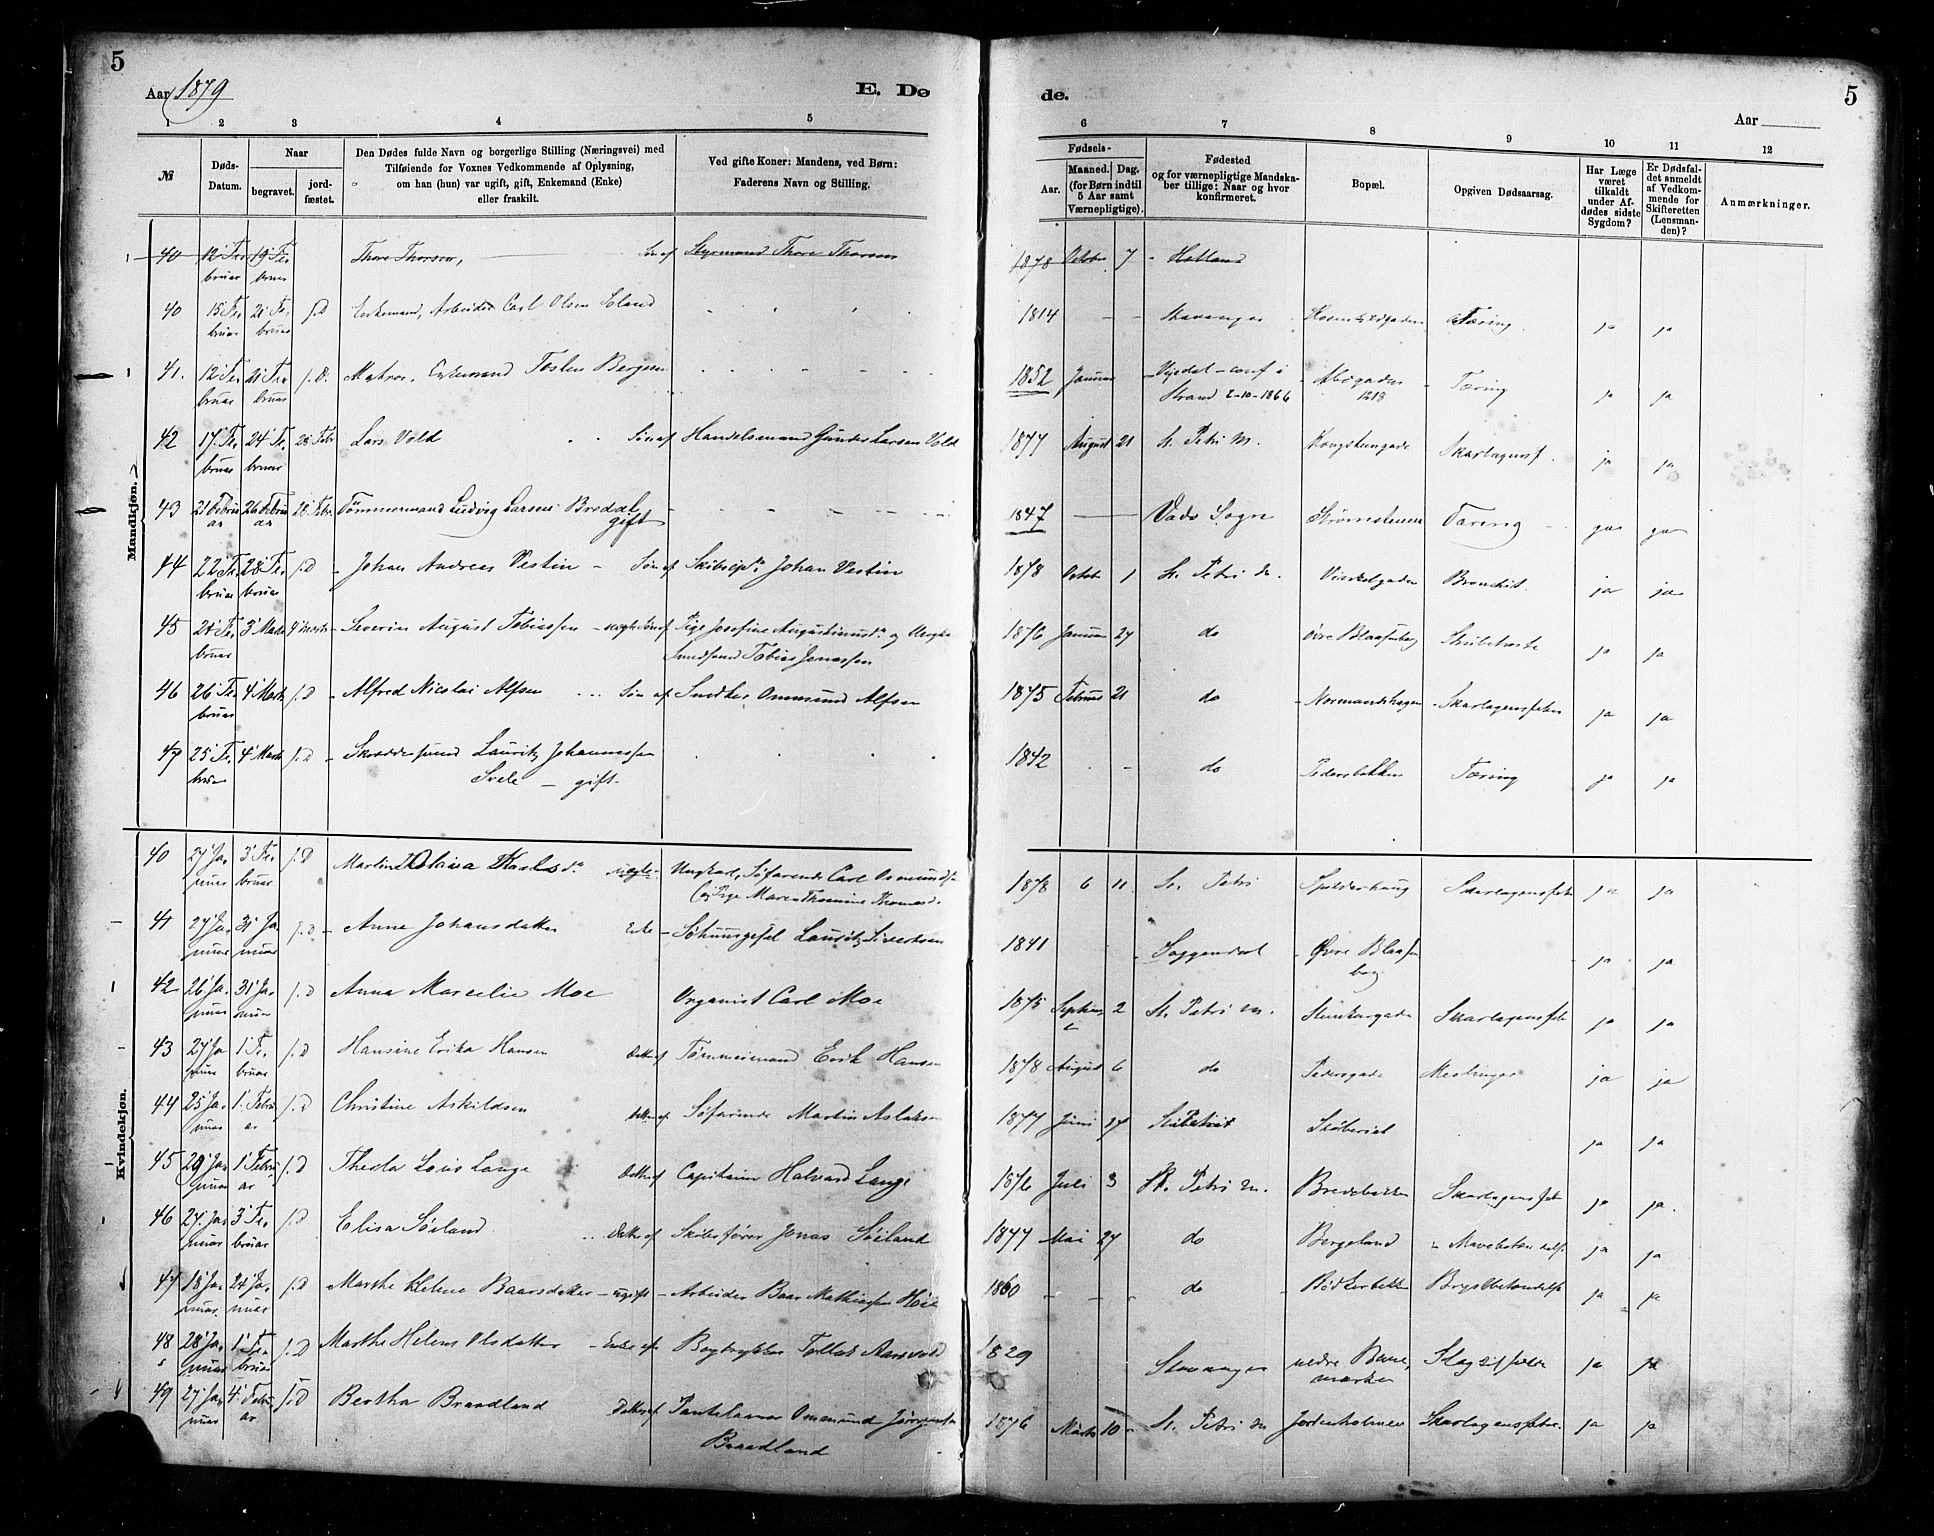 5
Aar 1879
E. Dø
de.
Aar
5
1 2 3 4 5 6 7 8 9 10 11 12
№
Døds-Datum.
Naar
begravet.
jordfæstet.
Den Dødes fulde Navn og borgerlige Stilling (Næringsvei) med
Tilføiende for Voxnes Vedkommende af Oplysning,
om han (hun) var ugift, gift, Enkemand (Enke)
eller fraskilt.
Ved gifte Koner: Mandens, ved Børn:
Faderens Navn og Stilling.
Fødsels-
Aar.
Maaned. Dag.
(for Børn indtil
5 Aar samt
Værnepligtige).
Fødested
og for værnepligtige Mandskaber tillige: Naar og hvor
konfirmeret.
Bopæl.
Opgiven Dødsaarsag.
Har Læge
været
tilkaldt
under Afdødes sidste
Sygdom?
Er Dødsfaldet anmeldt
af Vedkommende for
Skifteretten
(Lensmanden)?
Anmærkninger.
Mandkjøn.
40 12' Februar 19' Februar Thore Thorsen, Søn af Styrmand Thore Thorsen 1878 Octobr 7 Hetland
40 15' Februar 21' Februar J.D Enkemand, Arbeider Carl Olsen Soland 1814 Stavanger Tæring ja ja
41. 12' Februar 21' Februar J.D. Matros, Enkemand Bergesen 1852 Januar conf i Tæring ja ja
Strand 2-10-1866 1218
42 17' Februar 24' Februar 28' Febr Lars Vold Søn af Handelsmand Gunder Larsen Vold 1877 August 21 St. Petri M. Kongstensgade Skarlagensf. ja ja
43 21' Februar 26' Februar 28' Febr. Tømmermand Ludvig Larsen Bredal 1847 Vads Sogn Strømstenen Tæring ja ja
gift
44 22' Februar 28' Februar J.D Johan Andreas Vestin Søn af Skibscpt. Johan Vestin 1878 Octob 1 St. Petri M. Vinkelgaden Bronchit. ja ja
45 24' Februar 3' Marts 4' Marts Severin August Tobiassen uægte Søn af Pige Josefine Augustinusd. og Ungkarl 1876 Januar 27 do øvre Blaasenborg Strubehoste ja ja
Tobias Jonassen
46 26' Februar 4' Marts J.D Alfred Nicolai Alfsen Søn af Snedker Ommund Alfsen 1875 Februar 21 do Normandshagen Skarlagensfeber ja ja
47 25' Februar 4' Marts J.D Skræddersvend Lauritz Johannessen 1842 do Pedersbakken Tæring ja ja
Svele – gift
Kvindekjøn.
40 27' Januar 3' Februar J.D Karlsd. uægte Ungkarl, Søfarende Carl Osmundsen 1878 6 11 St. Petri Spilderhaug Skarlagensfeber ja ja
og Pige Maren Thomine Thomasd.
41 27' Januar 31' Januar J.D Anna Johansdatter Enke Lauritz Sivertsen 1841 Soggendal Øvre Blaasenborg ja ja
42 26' Januar 31' Januar J.D Anna Marcelie Moe Organist Carl Moe 1875 September 2 St. Petri M. Steinkargade Skarlagensfeber ja ja
43 27' Januar 1' Februar J.D Hansine Erika Hansen Datter af Tømmermand Erik Hansen 1878 August 6 do Pedersgade Meslinger ja ja
44 25' Januar 1' Februar J.D Christine Askildsen Datter af Søfarende Martin Aslaksen 1877 Juni 27 Støberiet ja ja
45 29' Januar 1' Februar J.D Thecla Lovis Lange Datter af Capitain Halvard Lange 1876 Juli 3 St. Petri M. Bredebakken Skarlagensfeber ja ja.
46 27' Januar 3' Februar J.D Elisa Søiland Datter af Skibsfører Jonas Søiland 1877 Mai 27 do Bergeland ja ja
47 18' Januar 24' Januar J.D Marthe Helene Baarsdatter ugift Arbeider Baar Mathiassen Høie 1860 do Bødkerbakken Brystbetændelse ja ja
48 28' Januar 1' Februar J.D Marthe Helene Olsdatter Enke efter Bogtrykker Tollak Aarsvold 1829 Stavanger nedre Banemarken ja ja
49 27' Januar 4' Februar J.D Bertha Braadland Datter af Ommund Jørgensen 1876 Marts 10 St. Petri M Jorenholmen Skarlagensfeber. ja ja
Braadland